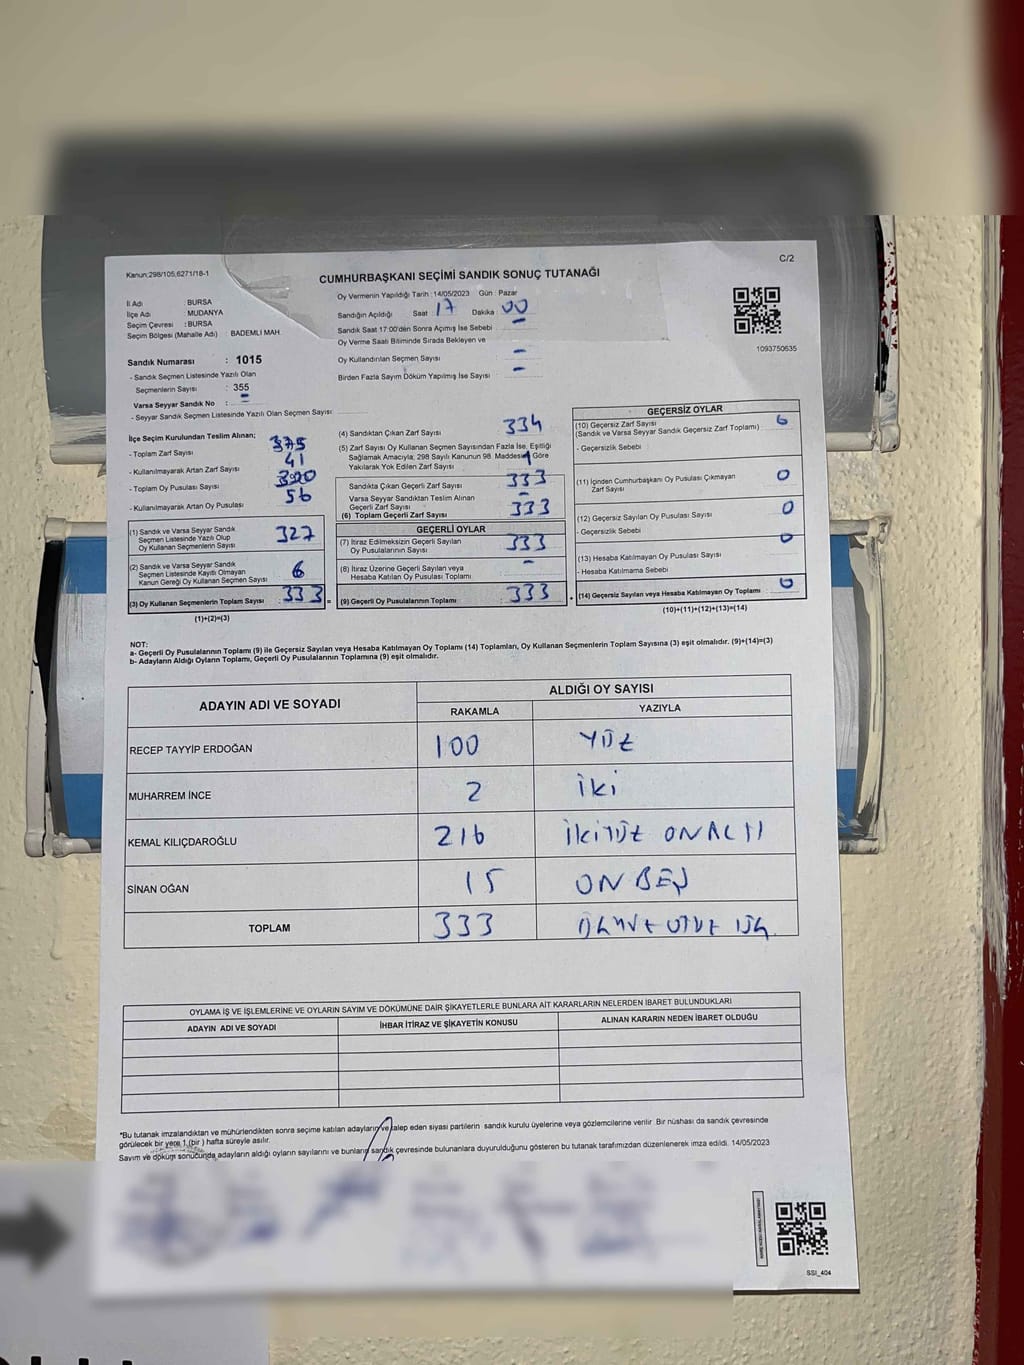 C/2
Kanun;298/105,6271/18-1
CUMHURBAŞKANI SEÇİMİ SANDIK SONUÇ TUTANAĞI
İl Adı : BURSA
İlçe Adı : MUDANYA
Seçim Çevresi : BURSA
Seçim Bölgesi (Mahalle Adı) : BADEMLİ MAH.
Sandık Numarası : 1015
- Sandık Seçmen Listesinde Yazılı Olan
Seçmenlerin Sayısı : 355
Varsa Seyyar Sandık No : -
- Seyyar Sandık Seçmen Listesinde Yazılı Olan Seçmen Sayısı:
Oy Vermenin Yapıldığı Tarih : 14/05/2023 Gün : Pazar
Sandığın Açıldığı Saat : 17 Dakika : 00
Sandık Saat 17:00'den Sonra Açılmış İse Sebebi : -
Oy Verme Saati Bitiminde Sırada Bekleyen ve
Oy Kullandırılan Seçmen Sayısı : -
Birden Fazla Sayım Döküm Yapılmış İse Sayısı : -
1093750635
İlçe Seçim Kurulundan Teslim Alınan;
- Toplam Zarf Sayısı : 375
- Kullanılmayarak Artan Zarf Sayısı : 41
- Toplam Oy Pusulası Sayısı
- Kullanılmayarak Artan Oy Pusulası : 56
(1) Sandık ve Varsa Seyyar Sandık
Seçmen Listesinde Yazılı Olup
Oy Kullanan Seçmenlerin Sayısı : 327
(2) Sandık ve Varsa Seyyar Sandık
Seçmen Listesinde Kayıtlı Olmayan
Kanun Gereği Oy Kullanan Seçmen Sayısı : 6
(3) Oy Kullanan Seçmenlerin Toplam Sayısı : 333 =
(1)+(2)=(3)
(4) Sandıktan Çıkan Zarf Sayısı : 334
(5) Zarf Sayısı Oy Kullanan Seçmen Sayısından Fazla İse, Eşitliği
Sağlamak Amacıyla; 298 Sayılı Kanunun 98. Maddesine Göre
Yakılarak Yok Edilen Zarf Sayısı : 1
Sandıkta Çıkan Geçerli Zarf Sayısı : 333
Varsa Seyyar Sandıktan Teslim Alınan
Geçerli Zarf Sayısı : -
(6) Toplam Geçerli Zarf Sayısı : 333
GEÇERLİ OYLAR
(7) İtiraz Edilmeksizin Geçerli Sayılan
Oy Pusulalarının Sayısı : 333
(8) İtiraz Üzerine Geçerli Sayılan veya
Hesaba Katılan Oy Pusulası Toplamı : -
(9) Geçerli Oy Pusulalarının Toplamı : 333 +
GEÇERSİZ OYLAR
(10) Geçersiz Zarf Sayısı
(Sandık ve Varsa Seyyar Sandık Geçersiz Zarf Toplamı)
- Geçersizlik Sebebi
(11) İçinden Cumhurbaşkanı Oy Pusulası Çıkmayan
Zarf Sayısı : 0
(12) Geçersiz Sayılan Oy Pusulası Sayısı : 0
- Geçersizlik Sebebi
(13) Hesaba Katılmayan Oy Pusulası Sayısı : 0
- Hesaba Katılmama Sebebi
(14) Geçersiz Sayılan veya Hesaba Katılmayan Oy Toplamı : 0
(10)+(11)+(12)+(13)=(14)
NOT:
a- Geçerli Oy Pusulalarının Toplamı (9) ile Geçersiz Sayılan veya Hesaba Katılmayan Oy Toplamı (14) Toplamları, Oy Kullanan Seçmenlerin Toplam Sayısına (3) eşit olmalıdır. (9)+(14)=(3)
b- Adayların Aldığı Oyların Toplamı, Geçerli Oy Pusulalarının Toplamına (9) eşit olmalıdır.
ADAYIN ADI VE SOYADI
ALDIĞI OY SAYISI
RAKAMLA YAZIYLA
RECEP TAYYİP ERDOĞAN 100 YÜZ
MUHARREM İNCE 2 İki
KEMAL KILIÇDAROĞLU 216 İKİYÜZ ONALTI
SİNAN OĞAN 15 ON BEŞ
TOPLAM 333 ÜÇYÜZ OTUZ ÜÇ
OYLAMA İŞ VE İŞLEMLERİNE VE OYLARIN SAYIM VE DÖKÜMÜNE DAİR ŞİKAYETLERLE BUNLARA AİT KARARLARIN NELERDEN İBARET BULUNDUKLARI
ADAYIN ADI VE SOYADI İHBAR İTİRAZ VE ŞİKAYETİN KONUSU ALINAN KARARIN NEDEN İBARET OLDUĞU
*Bu tutanak imzalandıktan ve mühürlendikten sonra seçime katılan adayların ve talep eden siyasi partilerin sandık kurulu üyelerine veya gözlemcilerine verilir. Bir nüshası da sandık çevresinde
görülecek bir yere 1 (bir ) hafta süreyle asılır.
Sayım ve döküm sonucunda adayların aldığı oyların sayılarını ve bunların sandık çevresinde bulunanlara duyurulduğunu gösteren bu tutanak tarafımızdan düzenlenerek imza edildi. 14/05/2023
SSI_404